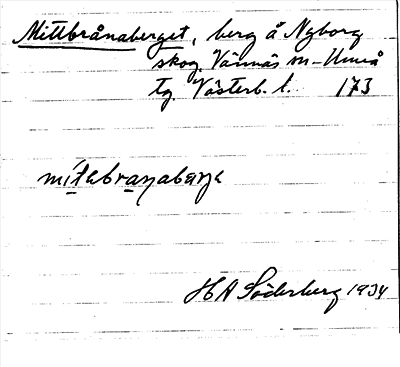 Mittbrånaberget, berg å Nyborg
skog, Vännäs sn – Umeå
tg. Västerb. l. 173
HA Söderberg 1934